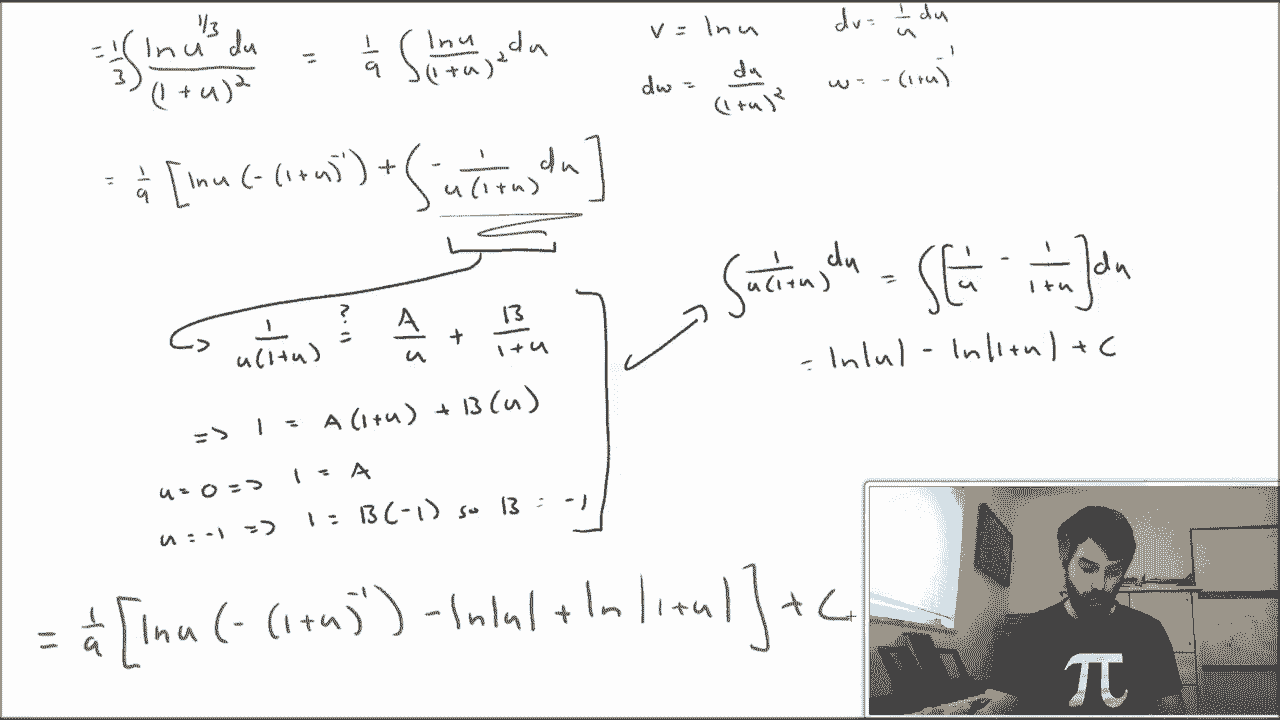 = 1/3 ∫ ln u^{1/3} du / (1+u)^2 = 1/9 ∫ ln u / (1+u)^2 du
v = ln u dv = 1/u du
dw = du/(1+u)^2 w = -(1+u)^{-1}
= 1/9 [ ln u (-(1+u)^{-1}) + ∫ - 1/(u(1+u)) du ]
1/(u(1+u)) ?= A/u + B/(1+u)
=> 1 = A(1+u) + B(u)
u=0 => 1 = A
u=-1 => 1 = B(-1) so B = -1
∫ 1/(u(1+u)) du = ∫ [ 1/u - 1/(1+u) ] du
= ln|u| - ln|1+u| + C
= 1/9 [ ln u (-(1+u)^{-1}) - ln|u| + ln|1+u| ] + C
π